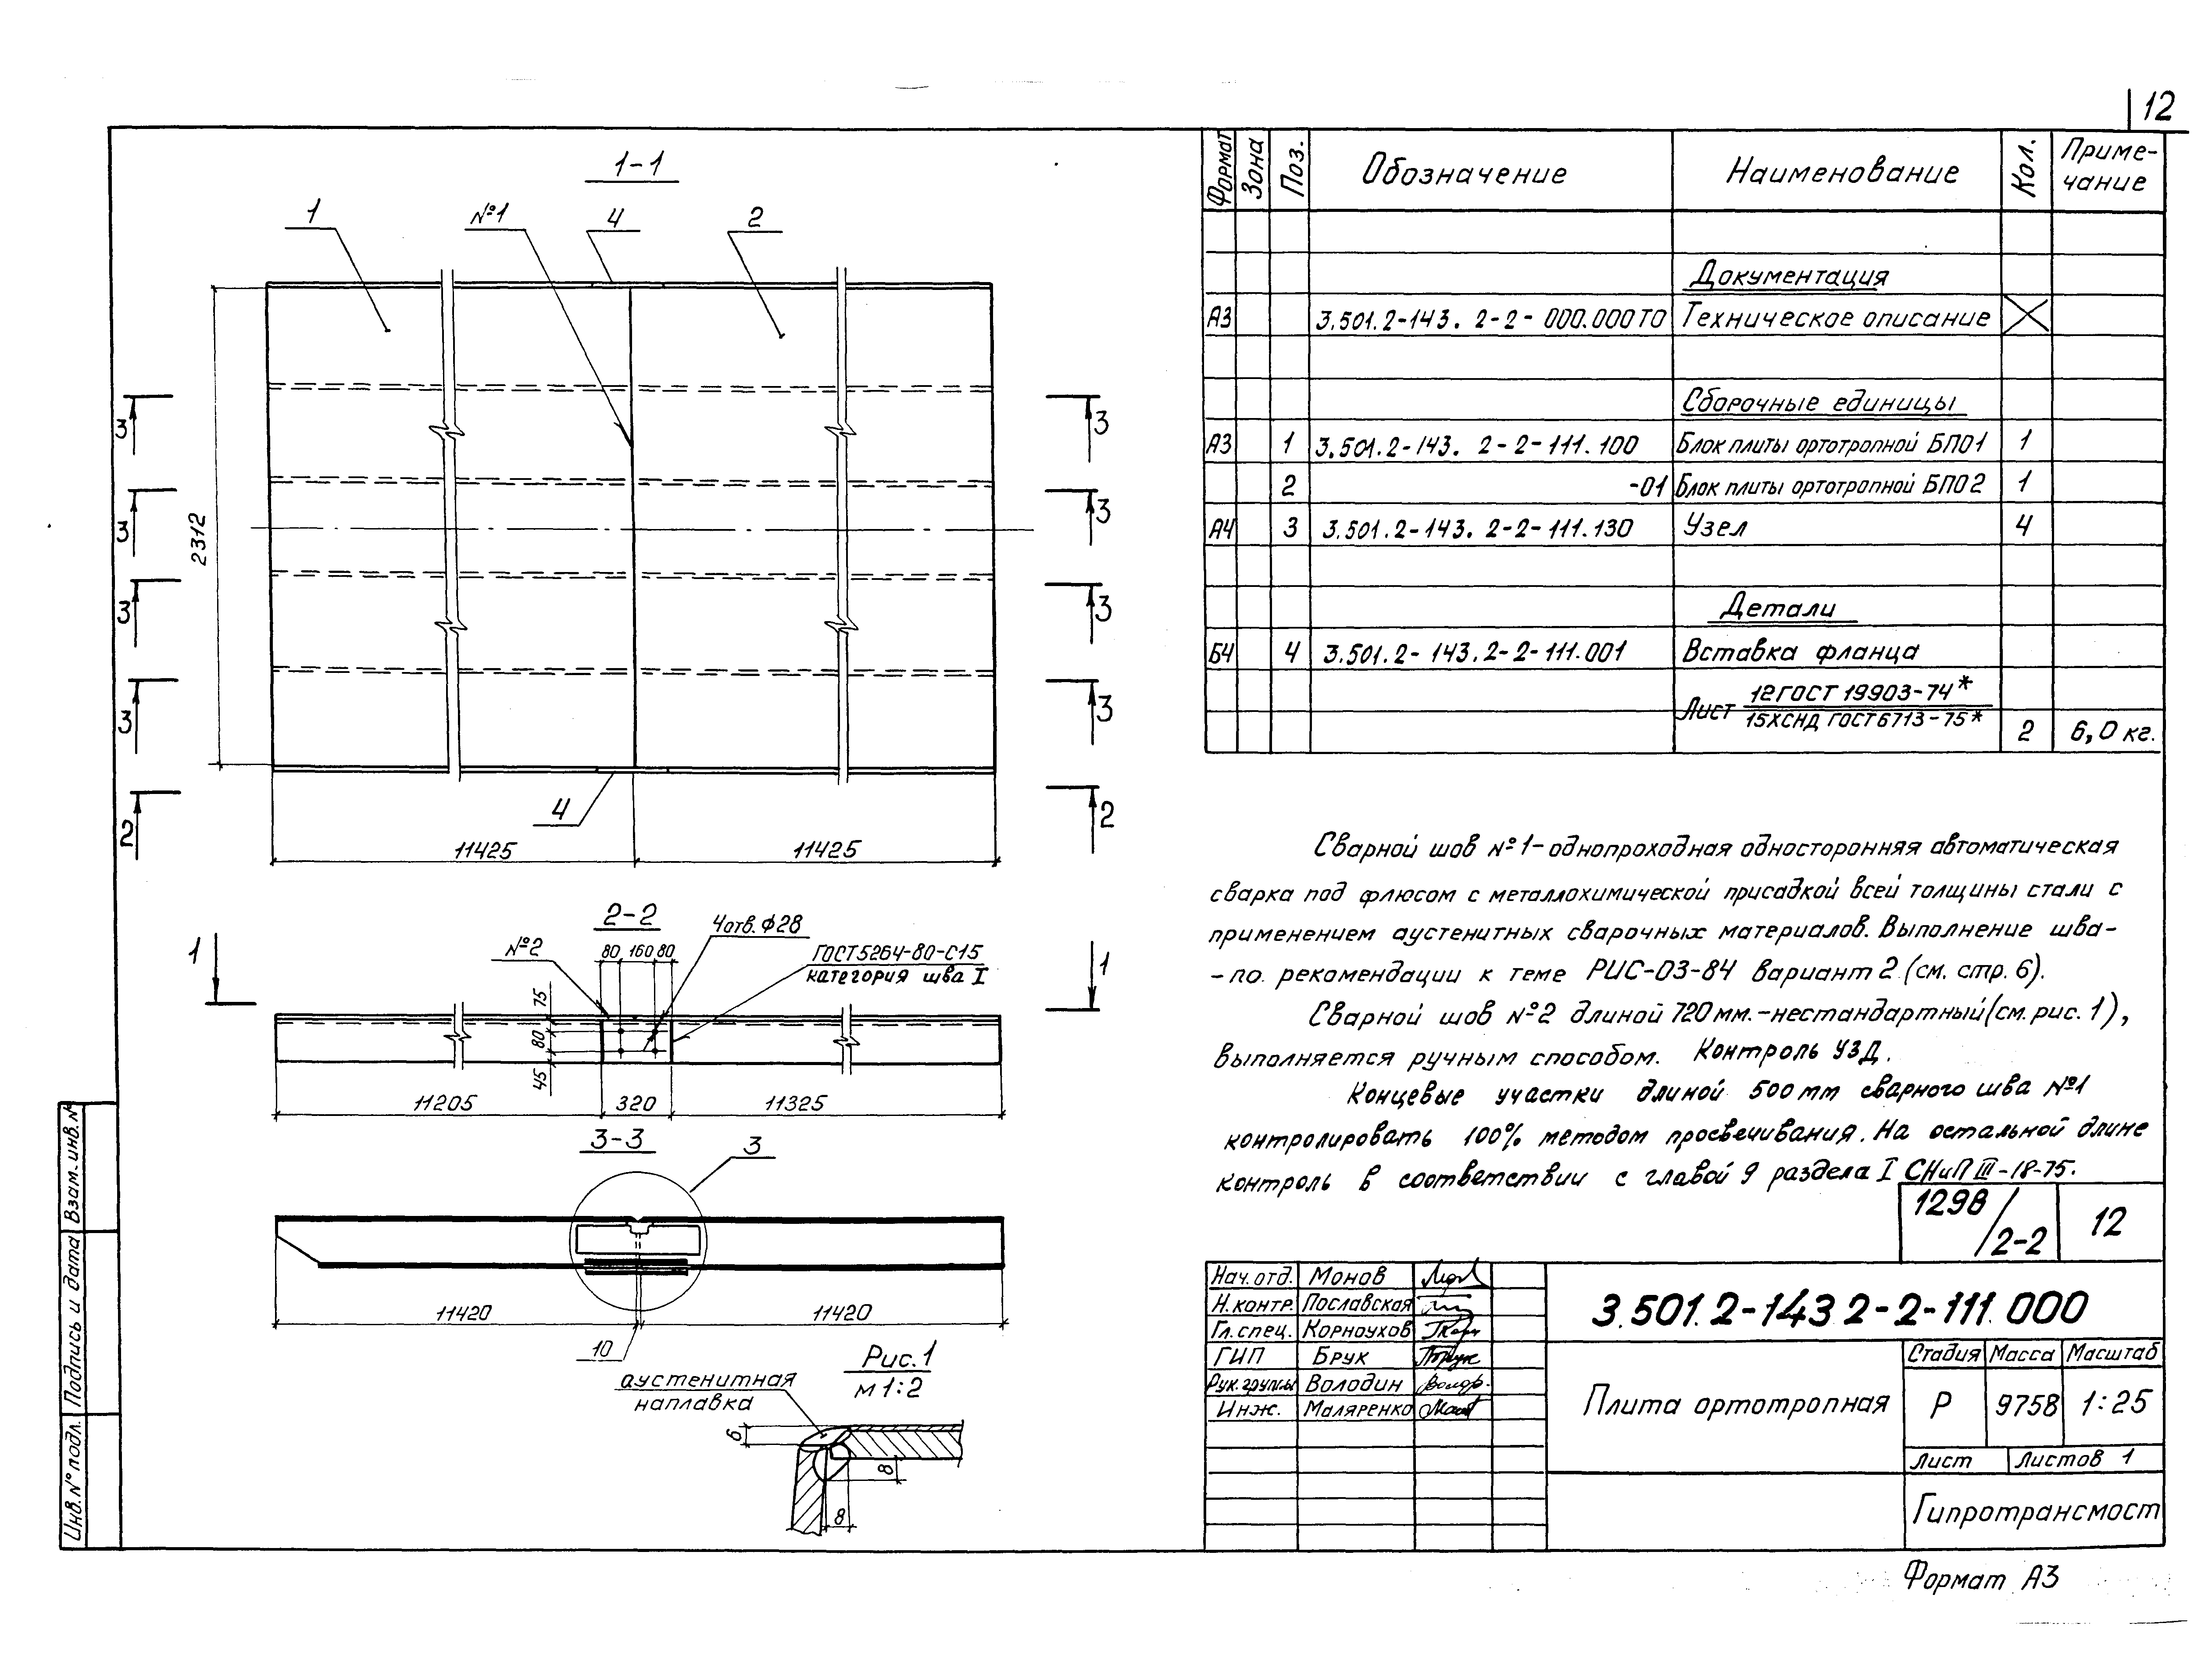 12
1-1
1
№1
4
2
2312
3
3
3
3
3
3
3
3
2
2
4
11425
11425
2-2
№2
80 160 80
4отв. Ф28
ГОСТ5264-80-С15
категория шва I
1
1
75
80
45
11205
320
11325
3-3
3
11420
11420
10
Рис.1
М 1:2
аустенитная
наплавка
6
8
8
Формат Зона Поз. Обозначение Наименование Кол. Приме-
чание
Документация
А3 3.501.2-143. 2-2-000.000ТО Техническое описание
Сборочные единицы
А3 1 3.501.2-143. 2-2-111.100 Блок плиты ортотропной БП01 1
2 -01 Блок плиты ортотропной БП02 1
А4 3 3.501.2-143. 2-2-111.130 Узел 4
Детали
Б4 4 3.501.2-143.2-2-111.001 Вставка фланца
Лист 12ГОСТ 19903-74*
15ХСНД ГОСТ6713-75* 2 6,0 кг.
Сварной шов №1-однопроходная односторонняя автоматическая
сварка под флюсом с металлохимической присадкой всей толщины стали с
применением аустенитных сварочных материалов. Выполнение шва-
-по рекомендации к теме РИС-03-84 вариант 2 (см. стр. 6).
Сварной шов №2 длиной 720мм.-нестандартный(см.рис.1),
выполняется ручным способом. Контроль УЗД.
Концевые участки длиной 500мм сварного шва №1
контролировать 100% методом просвечивания. На остальной длине
контроль в соответствии с главой 9 раздела I СНиП III-18-75.
1298/2-2 12
Нач.отд. Монов
Н.контр. Пославская
Гл.спец. Корноухов
ГИП Брук
Рук.группы Володин
Инж. Маляренко
3.501.2-143.2-2-111.000
Плита ортотропная
Стадия Масса Масштаб
Р 9758 1:25
Лист Листов 1
Гипротрансмост
Формат А3
Взам.инв.№
Подпись и дата
Инв.№ подл.